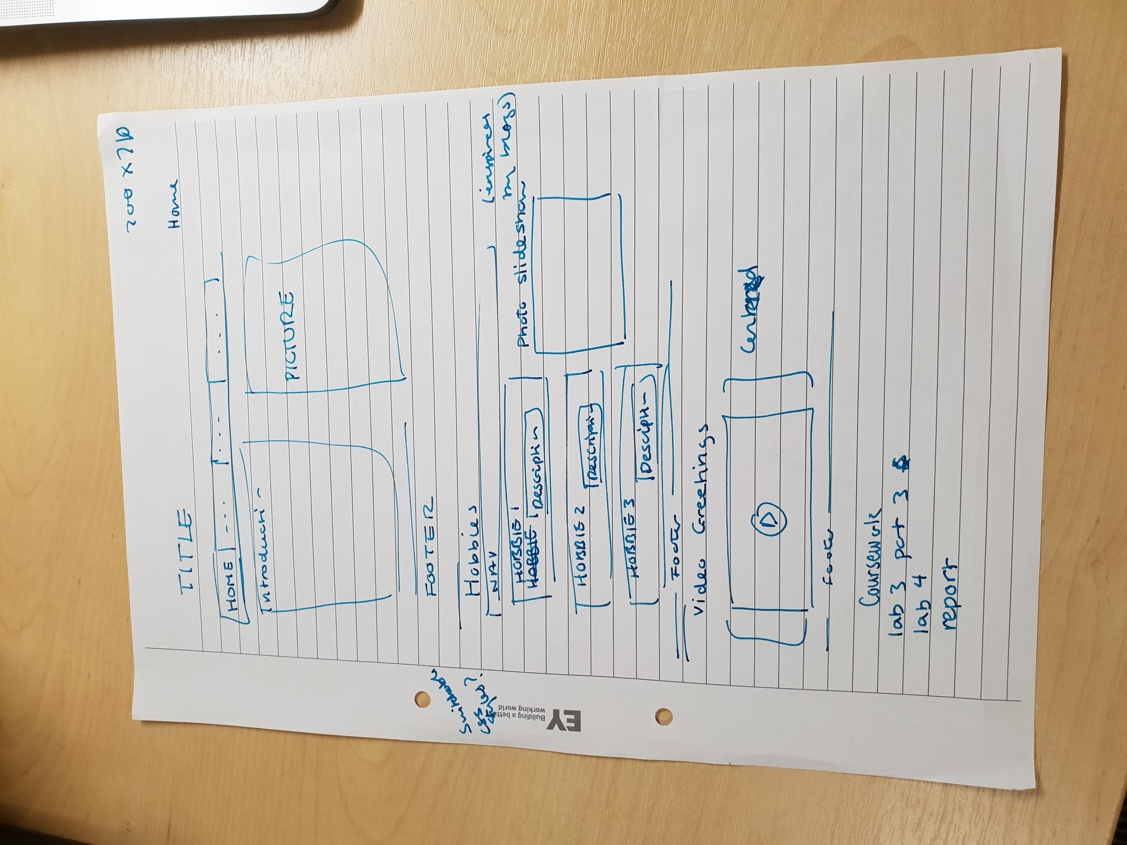 Home
TITLE
HOME
Introducti
PICTURE
FOOTER
Hobbies
NAV
Photo slideshow
HOBBIE 1
HOBBIE
Description
HOBBIE 2
Description
HOBBIE 3
Desciption
Footer
Video Greetings
Centered
Footer
Coursework
lab 3 part 3
lab 4
report
EY
Building a better
working world